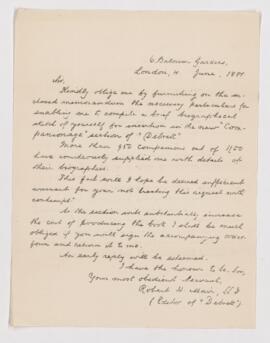 Gardens,
London, W June, 1891
Sir,
Kindly oblige me by furnishing on the en-
closed memorandum the necessary particulars for
enabling me to compile a brief biographical
sketch of yourself for insertion in the new "Com-
panionage" section of "Debrett".
More than 950 Companions out of 1100
have courteously supplied me with details of
their biographies.
This fact will I hope be deemed sufficient
warrant for your not treating this request with
contempt.
As the section will substantially increase
the cost of producing the book I shall be much
obliged if you will sign the accompanying order
form and return it to me.
An early reply will be esteemed.
I have the honour to be, Sir,
Your most obedient Servant,
Robert H. Mair, LL.D
(Editor of "Debrett")